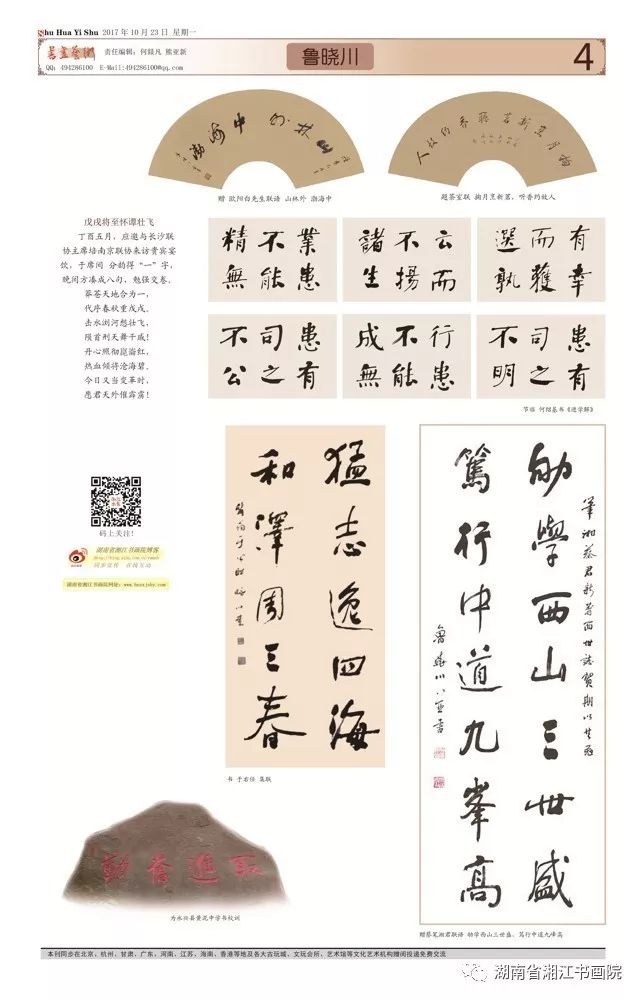 Shu Hua Yi Shu 2017年10月23日 星期一
书画艺术
责任编辑：何燚凡 熊亚新
QQ: 494286100 E-Mail:494286100@qq.com
鲁晓川
4
山林外 渤海中
掬月烹新茗 听香约故人
赠 欧阳白先生联语 山林外 渤海中
题茶室联 掬月烹新茗，听香约故人
戊戌将至怀谭壮飞
丁酉五月，应邀与长沙联
协主席培南京联协来访贵宾宴
饮，于席间 分韵得“一”字，
晚间方凑成八句，勉强交卷。
莽苍天地合为一，
代序春秋重戊戌。
击水浏河想壮飞，
陨首刑天舞干戚！
丹心照彻崑崙红，
热血倾得沧海碧。
今日又当变革时，
愿君天外催霹雳！
有幸
而獲
選孰
云而
不揚
諸生
業患
不能
精無
患有
司之
不明
行患
不能
成無
患有
司之
不公
节临 何绍基书《进学解》
猛志逸四海
和澤周三春
书 于右任 集联
劬學西山三世盛
篤行中道九峯高
魯曉川
赠蔡笔湘君联语 劬学西山三世盛，笃行中道九峰高
码上关注！
湖南省湘江书画院博客
同步宣传 在线互动
湖南省湘江书画院网址：www.hnxxjshy.com
取進奮勤
为永兴县黄泥中学书校训
本刊同步在北京、杭州、甘肃、广东、河南、江苏、海南、香港等地及各大古玩城、文玩会所、艺术馆等文化艺术机构赠阅投递免费交流
湖南省湘江书画院